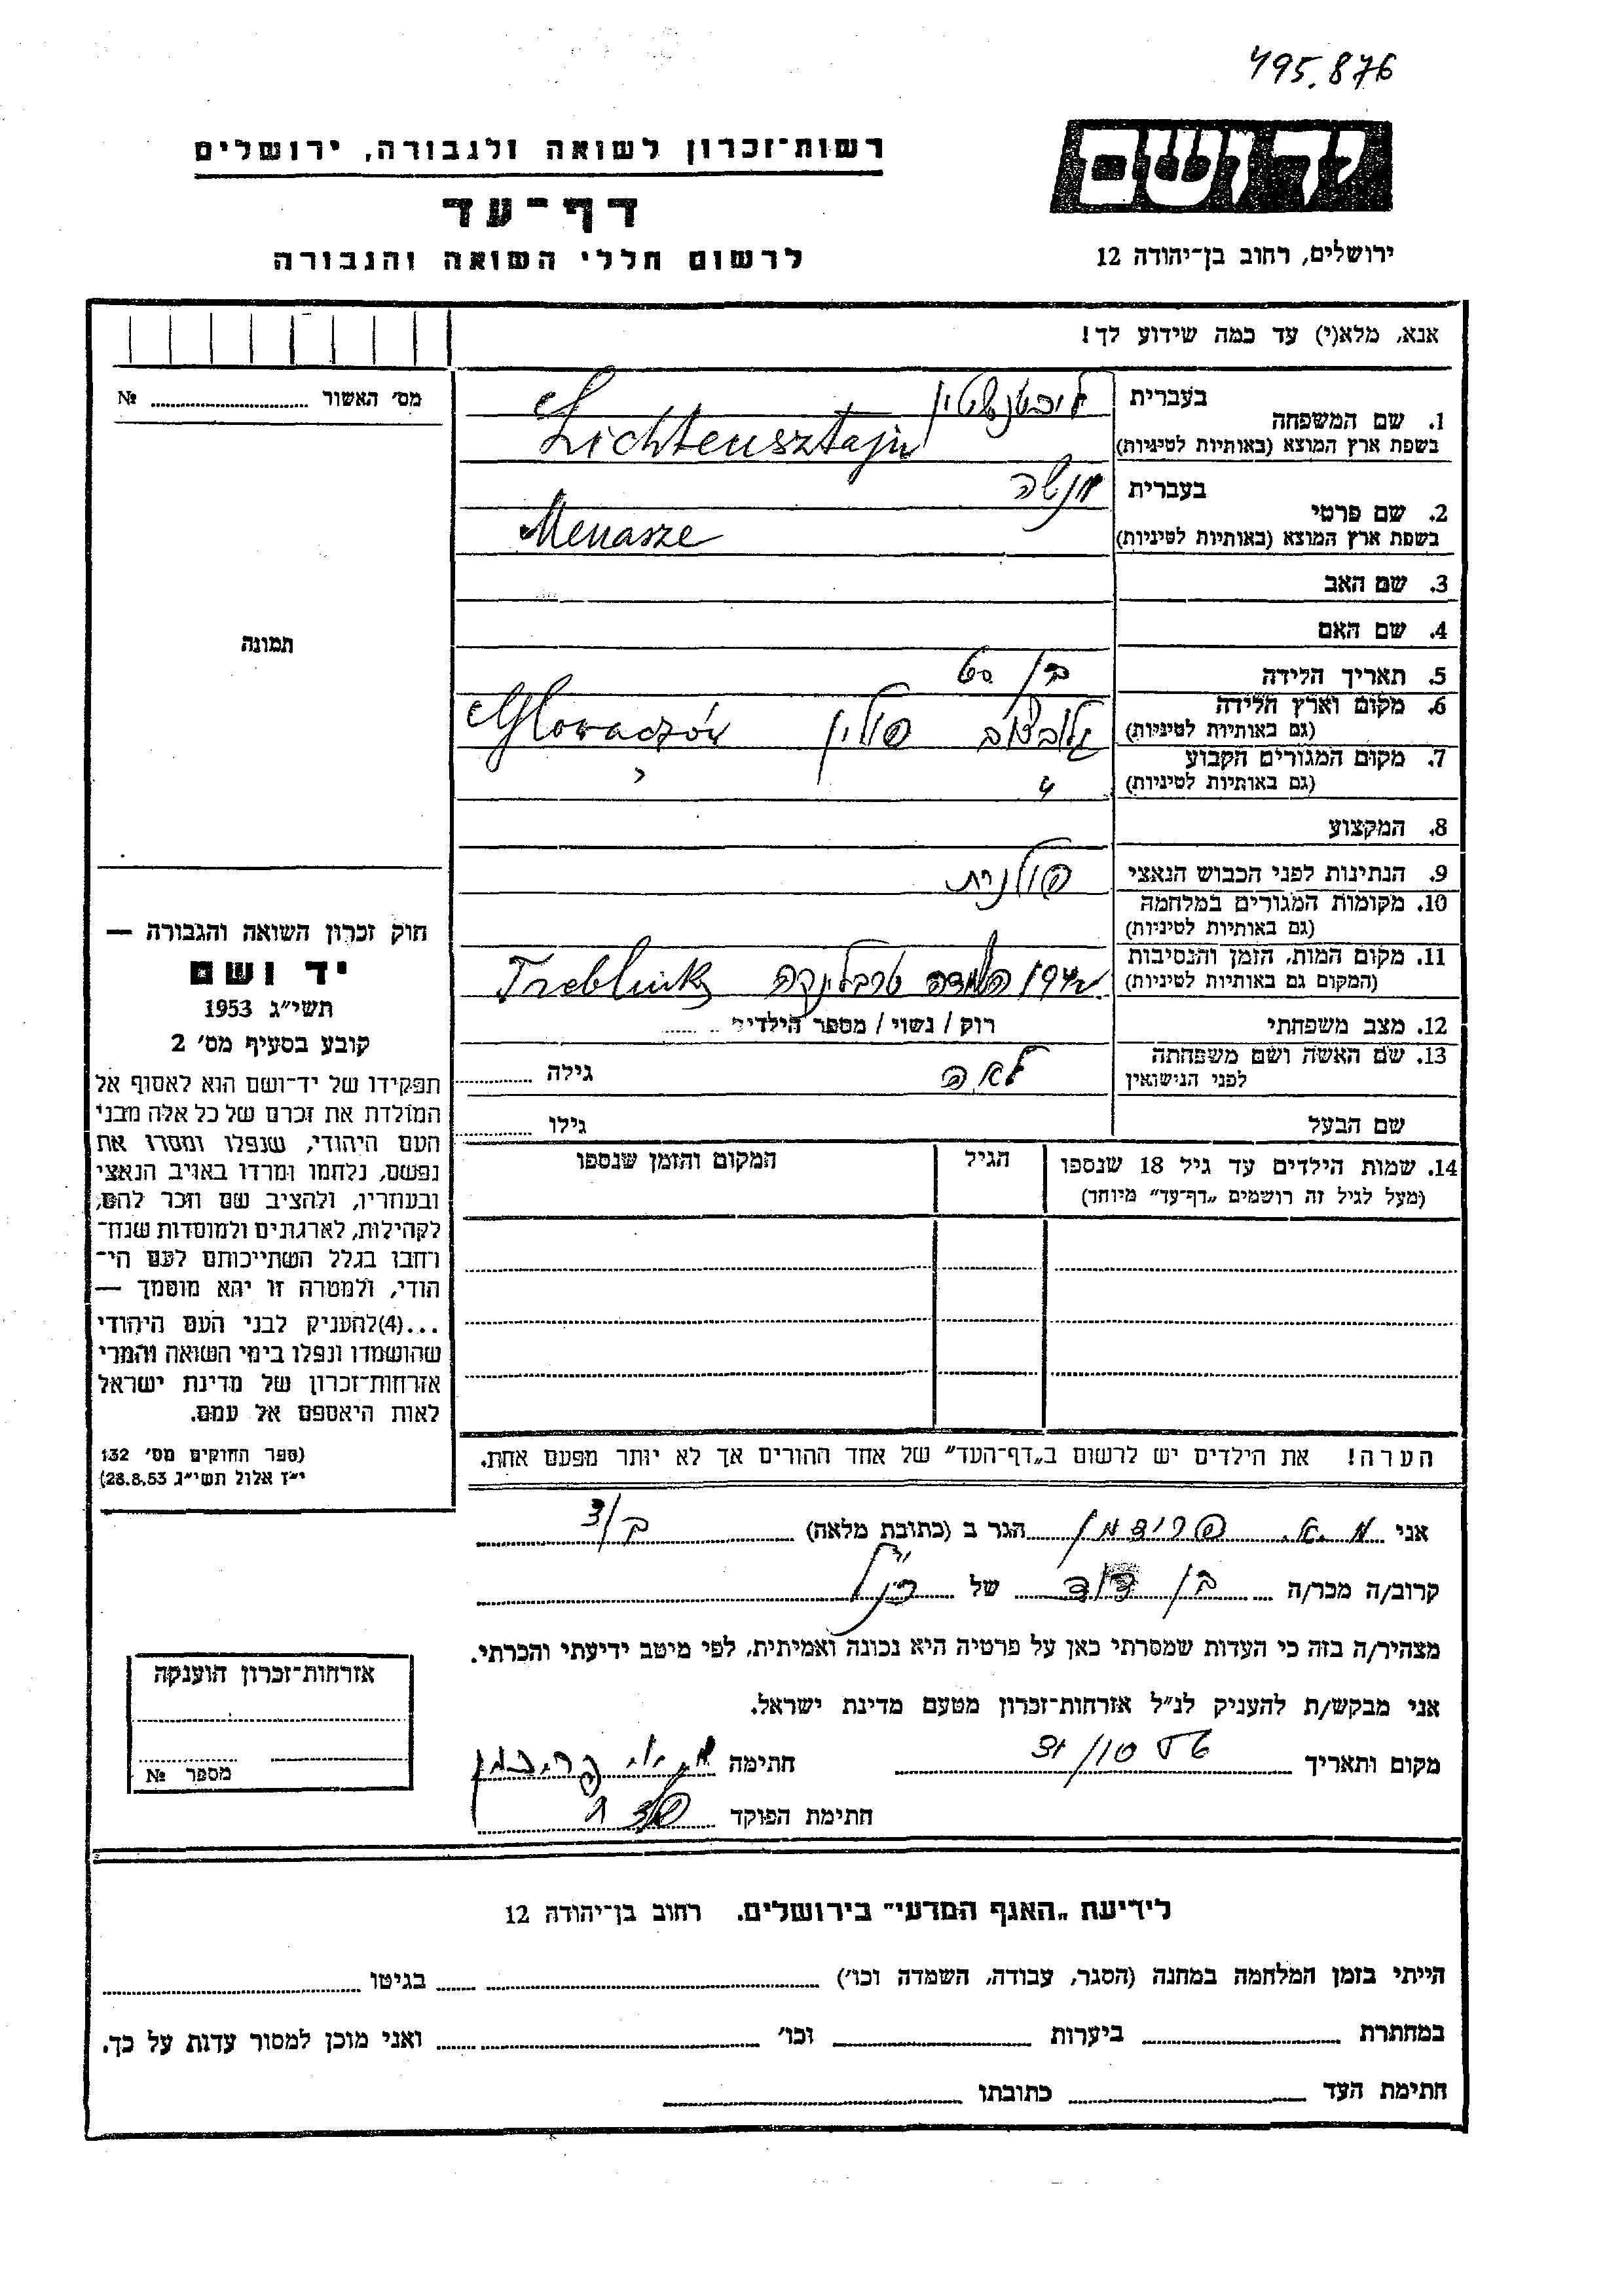 495.876
יד ושם
רשות־זכרון לשואה ולגבורה, ירושלים
דף־עד
לרשום חללי השואה והגבורה
ירושלים, רחוב בן־יהודה 12
אנא, מלא(י) עד כמה שידוע לך!
מס' האשור № 
בעברית ליכטנשטיין
1. שם המשפחה
בשפת ארץ המוצא (באותיות לטיניות) Lichtensztajn
בעברית מנשה
2. שם פרטי
בשפת ארץ המוצא (באותיות לטיניות) Menasze
3. שם האב
4. שם האם
תמונה
5. תאריך הלידה בן 60
6. מקום וארץ הלידה גלובצוב פולין Glowaczów
(גם באותיות לטיניות)
7. מקום המגורים הקבוע
(גם באותיות לטיניות) "
8. המקצוע
9. הנתינות לפני הכבוש הנאצי פולנית
10. מקומות המגורים במלחמה
(גם באותיות לטיניות)
11. מקום המות, הזמן והנסיבות
(המקום גם באותיות לטיניות) 1942 השמדה טרבלינקה Treblinka
12. מצב משפחתי רוק / נשוי / מספר הילדים
13. שם האשה ושם משפחתה
לפני הנישואין לאה גילה
שם הבעל גילו
14. שמות הילדים עד גיל 18 שנספו הגיל המקום והזמן שנספו
(מעל לגיל זה רושמים „דף־עד" מיוחד)
חוק זכרון השואה והגבורה —
יד ושם
תשי"ג 1953
קובע בסעיף מס' 2
תפקידו של יד־ושם הוא לאסוף אל
המולדת את זכרם של כל אלה מבני
העם היהודי, שנפלו ומסרו את
נפשם, נלחמו ומרדו באויב הנאצי
ובעוזריו, ולהציב שם וזכר להם,
לקהילות, לארגונים ולמוסדות שנח־
רחבו בגלל השתייכותם לעם הי־
הודי, ולמטרה זו יהא מוסמך —
...(4)להעניק לבני העם היהודי
שהושמדו ונפלו בימי השואה והמרי
אזרחות־זכרון של מדינת ישראל
לאות היאספם אל עמם.
(ספר החוקים מס' 132
י"ז אלול תשי"ג 28.8.53)
הערה! את הילדים יש לרשום ב„דף־העד" של אחד ההורים אך לא יותר מפעם אחת.
אני מ.א. פרידמן הגר ב (כתובת מלאה)
קרוב/ה מכר/ה בן דוד של הנ"ל
מצהיר/ה בזה כי העדות שמסרתי כאן על פרטיה היא נכונה ואמיתית, לפי מיטב ידיעתי והכרתי.
אני מבקש/ת להעניק לנ"ל אזרחות־זכרון מטעם מדינת ישראל.
מקום ותאריך חתימה
חתימת הפוקד
אזרחות־זכרון הוענקה
מספר №
לידיעת „האגף המדעי" בירושלים. רחוב בן־יהודה 12
הייתי בזמן המלחמה במחנה (הסגר, עבודה, השמדה וכו') בגיטו
במחתרת ביערות וכו' ואני מוכן למסור עדות על כך.
חתימת העד כתובתו